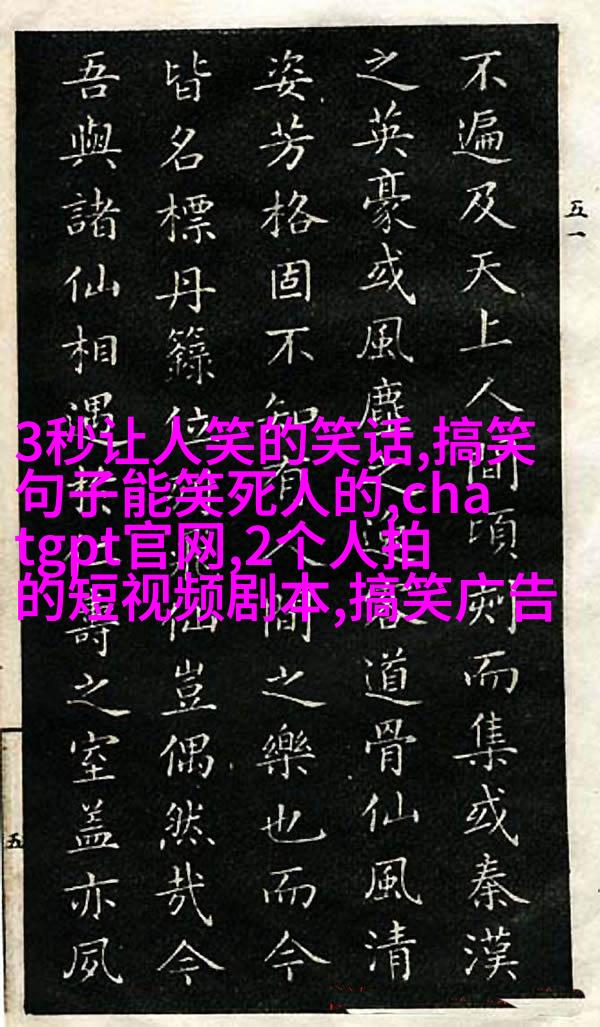 不遍及天上人間頃刻而集或秦漢
之英豪或風塵之逸客道骨仙風清
姿芳格固不知有人間之樂也而今
皆名標丹籙位列飛仙豈偶然哉今
吾與諸仙相遇於仁壽之室盖亦夙
五一
五
3秒让人笑的笑话,搞笑
句子能笑死人的,cha
tgpt官网,2个人拍
的短视频剧本,搞笑广告